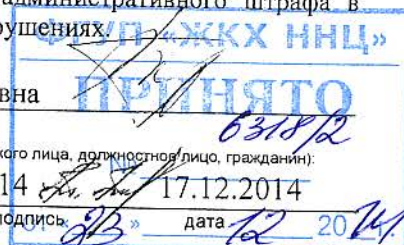 административного штрафа в
рушениях.
ФГУП «ЖКХ ННЦ»
вна
ПРИНЯТО
6318/2
кого лица, должностное лицо, гражданин):
№
14 17.12.2014
подпись дата
от «23» 12 2014